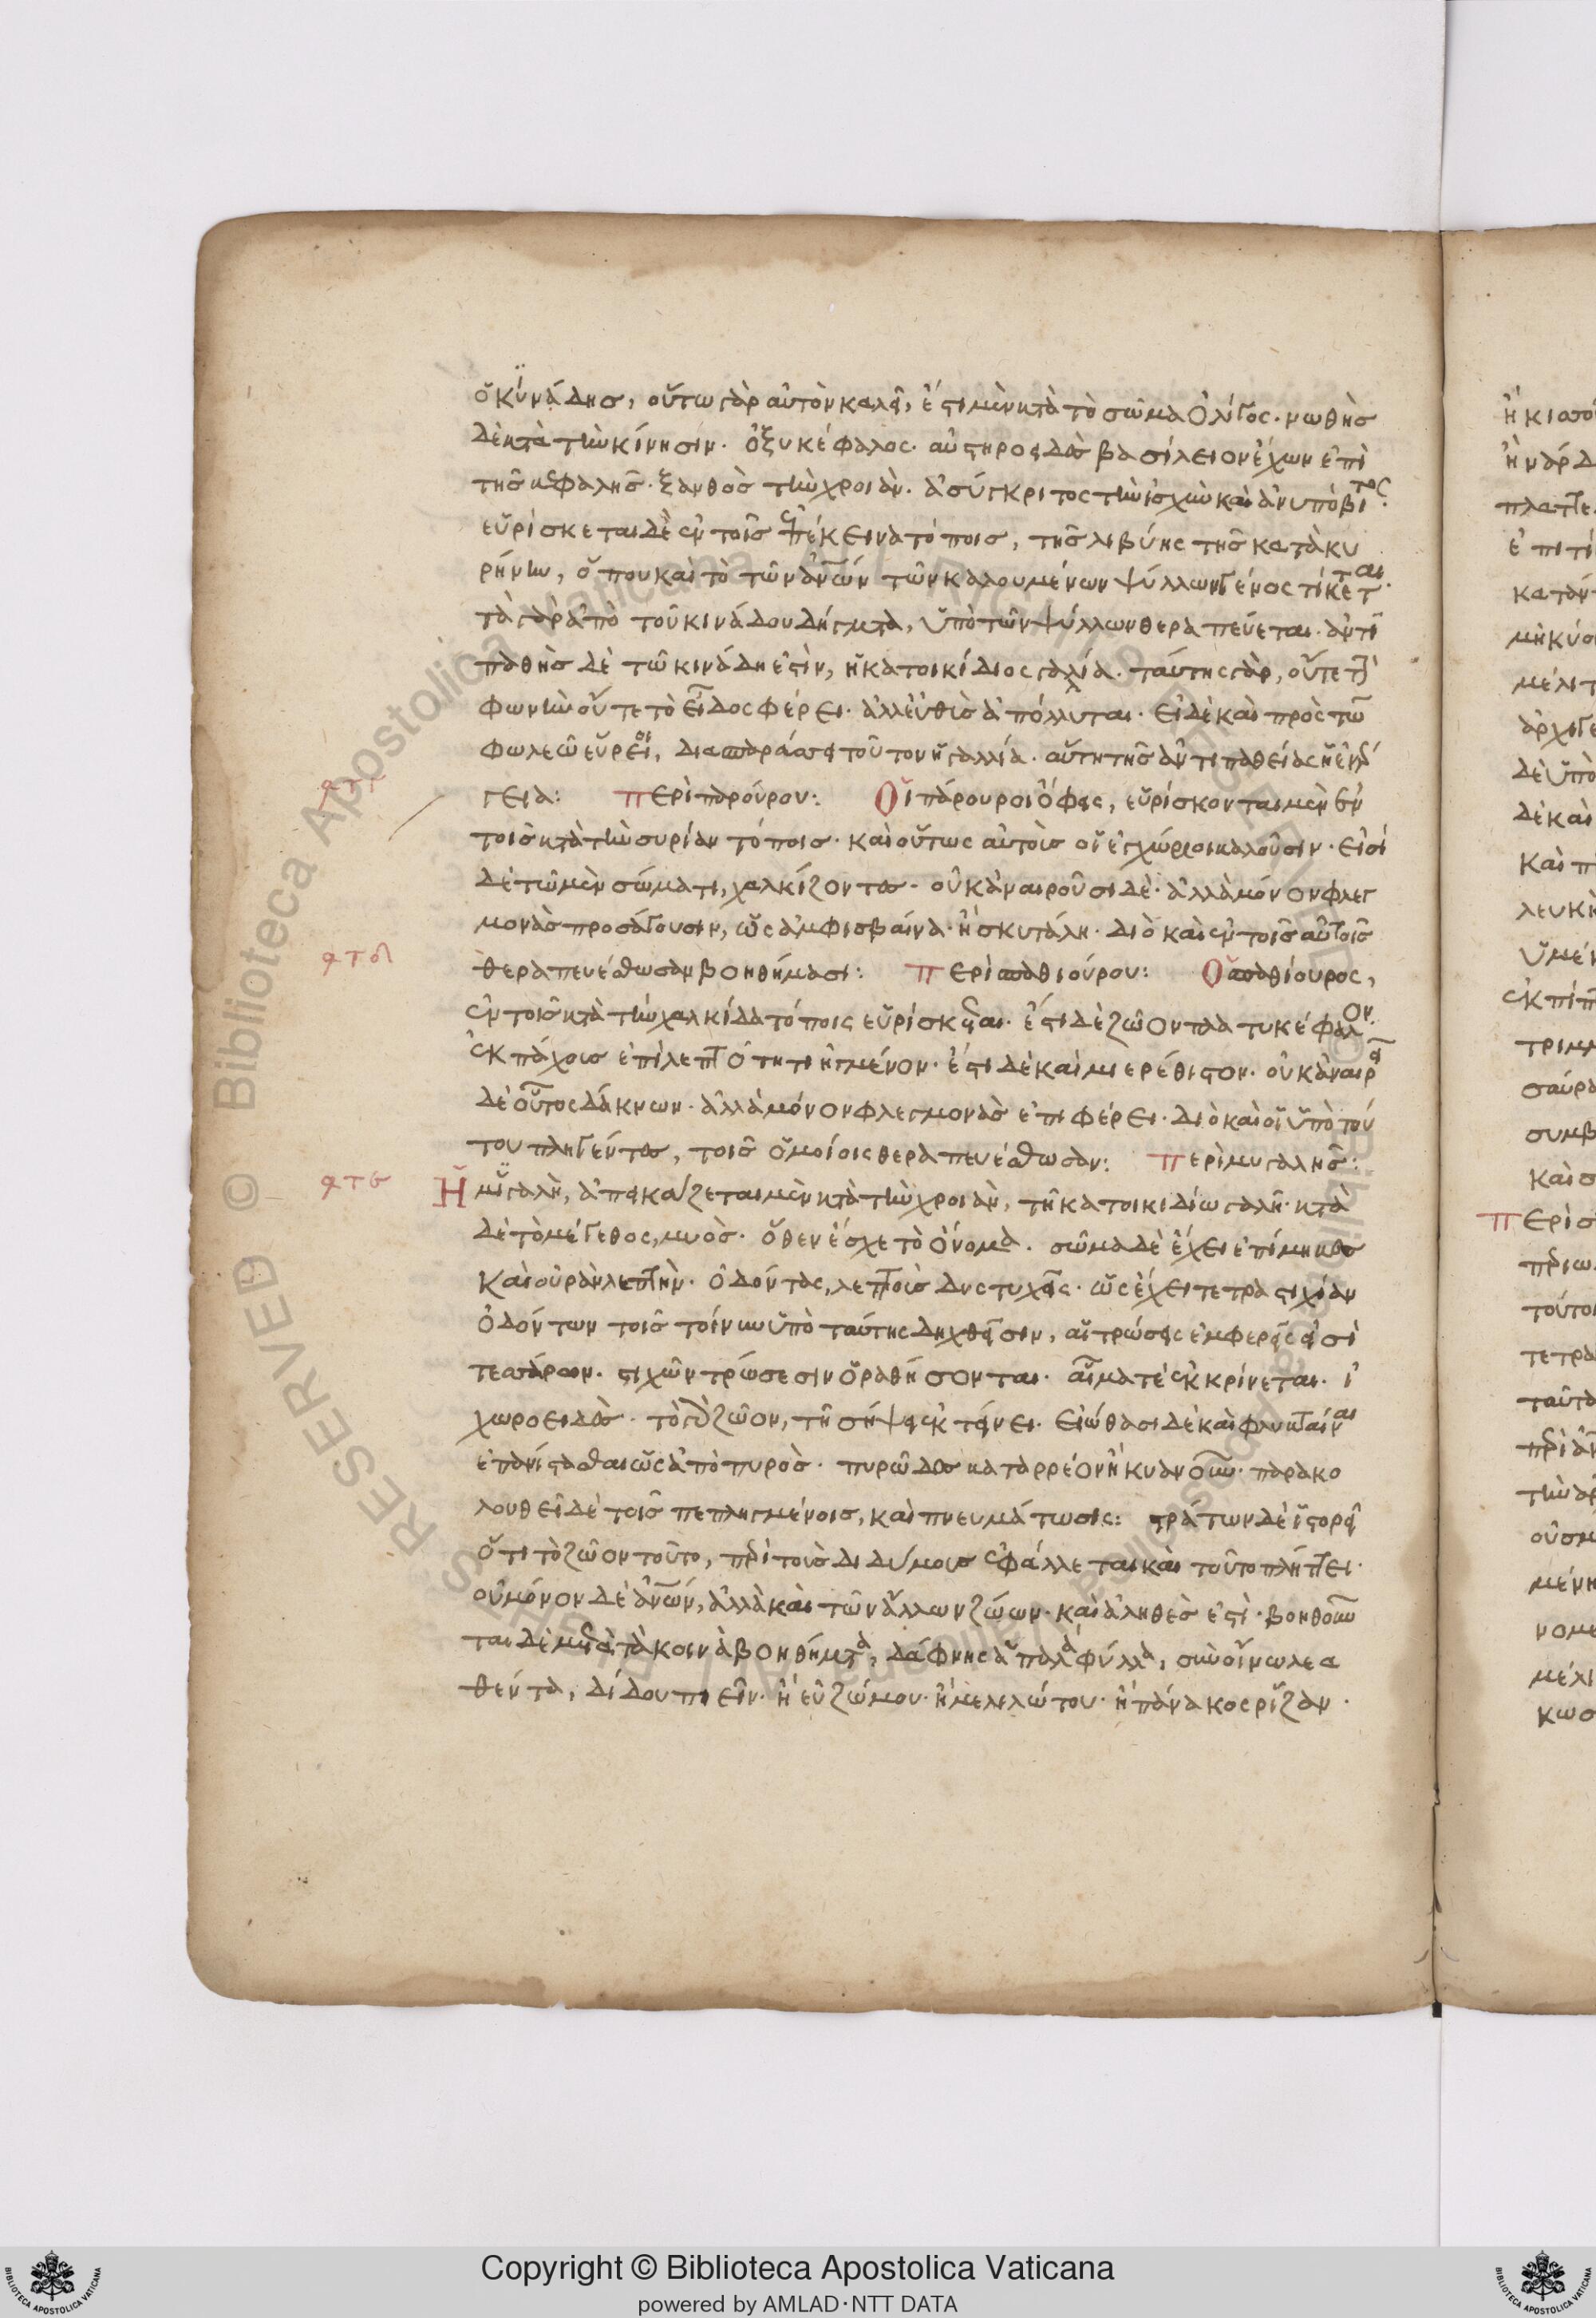 ὁ κϊνάδησ, οὕτω γὰρ αὐτὸν καλεῖ, ἔστι μὲν κατὰ τὸ σῶμα ὀλίγος. νωθὴσ
δὲ κατὰ τὴν κίνησιν. ὀξυκέφαλος. αὐστηροειδὲς βασίλειον ἔχων ἐπὶ
τῆσ κεφαλῆσ. ξανθὸσ τὴν χροιάν. ἀσύγκριτος τὴν ἰσχὺν καὶ ἀνυπόβιτος.
εὑρίσκεται δὲ ἐν τοῖσ ἐπέκεινα τόποισ, τῆσ λιβύης τῆσ κατὰ κυ
ρήνην, ὅπου καὶ τὸ τῶν ἀνων τῶν καλουμένων ψύλλων γένος τίκεται.
τὰ γὰρ ἀπὸ τοῦ κινάδου δήγματα, ὑπὸ τῶν ψύλλων θεραπεύεται. ἀντι
παθὴσ δὲ τῶ κινάδη ἐστὶν, ἡ κατοικίδιος γαλία. ταύτης γὰρ, οὔτε τὴν
φωνὴν οὔτε τὸ εἶδος φέρει. ἀλλ' εὐθὺσ ἀπόλλυται. εἰ δὲ καὶ πρὸς τῶ
φωλεῶ εὕρεοι, διασπαράσσει τοῦτον ἡ γαλλία. αὕτη τῆσ ἀντιπαθείας ἡ ἐνάρ
γεια: Περὶ παρούρου: Οἱ πάρουροι ὄφεις, εὑρίσκονται μὲν ἐν
τοῖσ κατὰ τὴν συρίαν τόποισ. καὶ οὕτως αὐτοὺσ οἱ ἐγχώριοι καλοῦσιν. εἰσὶ
δὲ τῶ μὲν σώματι, χαλκίζοντες. οὐκ ἀναιροῦσι δὲ. ἀλλὰ μόνον φλεγ
μονὰσ προσάγουσιν, ὡς ἀμφισβαίνα. ἢ σκυτάλη. διὸ καὶ ἐν τοῖσ αὐτοῖσ
θεραπευέσθωσαν βοηθήμασι: Περὶ σπαθιούρου: Ὁ σπαθίουρος,
ἐν τοῖσ κατὰ τὴν χαλκίδα τόποις εὑρίσκεται. ἔστι δὲ ζῶον πλατυκέφαλον.
ἐκ πάχουσ ἐπὶ λεπτότητι ἠγμένον. ἔστι δὲ καὶ μιερέθιστον. οὐκ ἀναιρεῖ
δὲ οὗτος δάκνων. ἀλλὰ μόνον φλεγμονὰσ ἐπιφέρει. διὸ καὶ οἱ ὑπὸ τού
του πληγέντες, τοῖσ ὁμοίοις θεραπευέσθωσαν: Περὶ μυγαλῆσ:
Ἡ μϋγαλὴ, ἀπεικάζεται μὲν κατὰ τὴν χροιὰν, τῆ κατοικιδίω γαλῆ. κατὰ
δὲ τὸ μέγεθος, μυὸσ. ὅθεν ἔσχε τὸ ὄνομα. σῶμα δὲ ἔχει ἐπίμηκες
καὶ οὐρὰν λεπτὴν. ὀδόντας, λεπτοὺσ δυστυχεῖς. ὡς ἔχει τετραστιχίαν
ὀδόντων τοῖσ τοίνυν ὑπὸ ταύτης δηχθεῖσιν, αἱ τρώσεις ἐμφερεῖς εἰσὶ
τεσσάρων. στιχῶν τρώσεσιν ὁραθήσονται. αἷμα τὲ ἐκκρίνεται. ἰ
χωροειδὲς. τὸ γὰρ ζῶον, τῆ σήψει ἐκτείνει. εἰώθασι δὲ καὶ φλυκταίναι
ἐπανίστασθαι ὡς ἀπὸ πυρὸσ. πυρῶδες καταρρέον ἢ κυανοῦν. παρακο
λουθεῖ δὲ τοῖσ πεπληγμένοισ, καὶ πνευμάτωσις: στράτων δὲ ἱστορεῖ
ὅτι τὸ ζῶον τοῦτο, περὶ τοὺσ διδύμουσ ἐφάλλεται καὶ τοῦτο πλήττει.
οὐ μόνον δὲ ἀνων, ἀλλὰ καὶ τῶν ἄλλων ζώων. καὶ ἀληθὲσ ἐστὶ. βοηθοῦν
ται δὲ μετὰ τὰ κοινὰ βοηθήματα, δάφνης ἁπαλὰ φύλλα, σὺν οἴνω λεα
θέντα, δίδου πιεῖν. ἢ εὐζώμου. ἢ μελιλώτου. ἢ πάνακος ρίζαν.
ϙτγ
ϙτδ
ϙτε
Copyright © Biblioteca Apostolica Vaticana
powered by AMLAD·NTT DATA